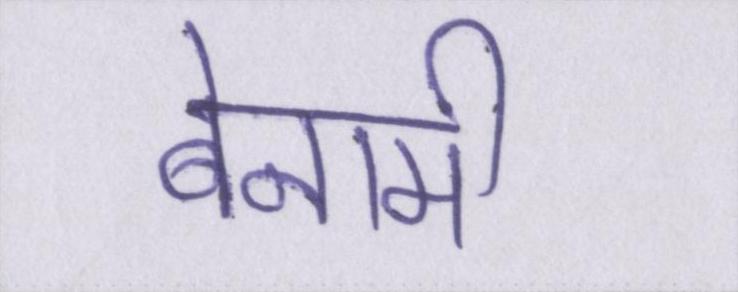 बेनामी